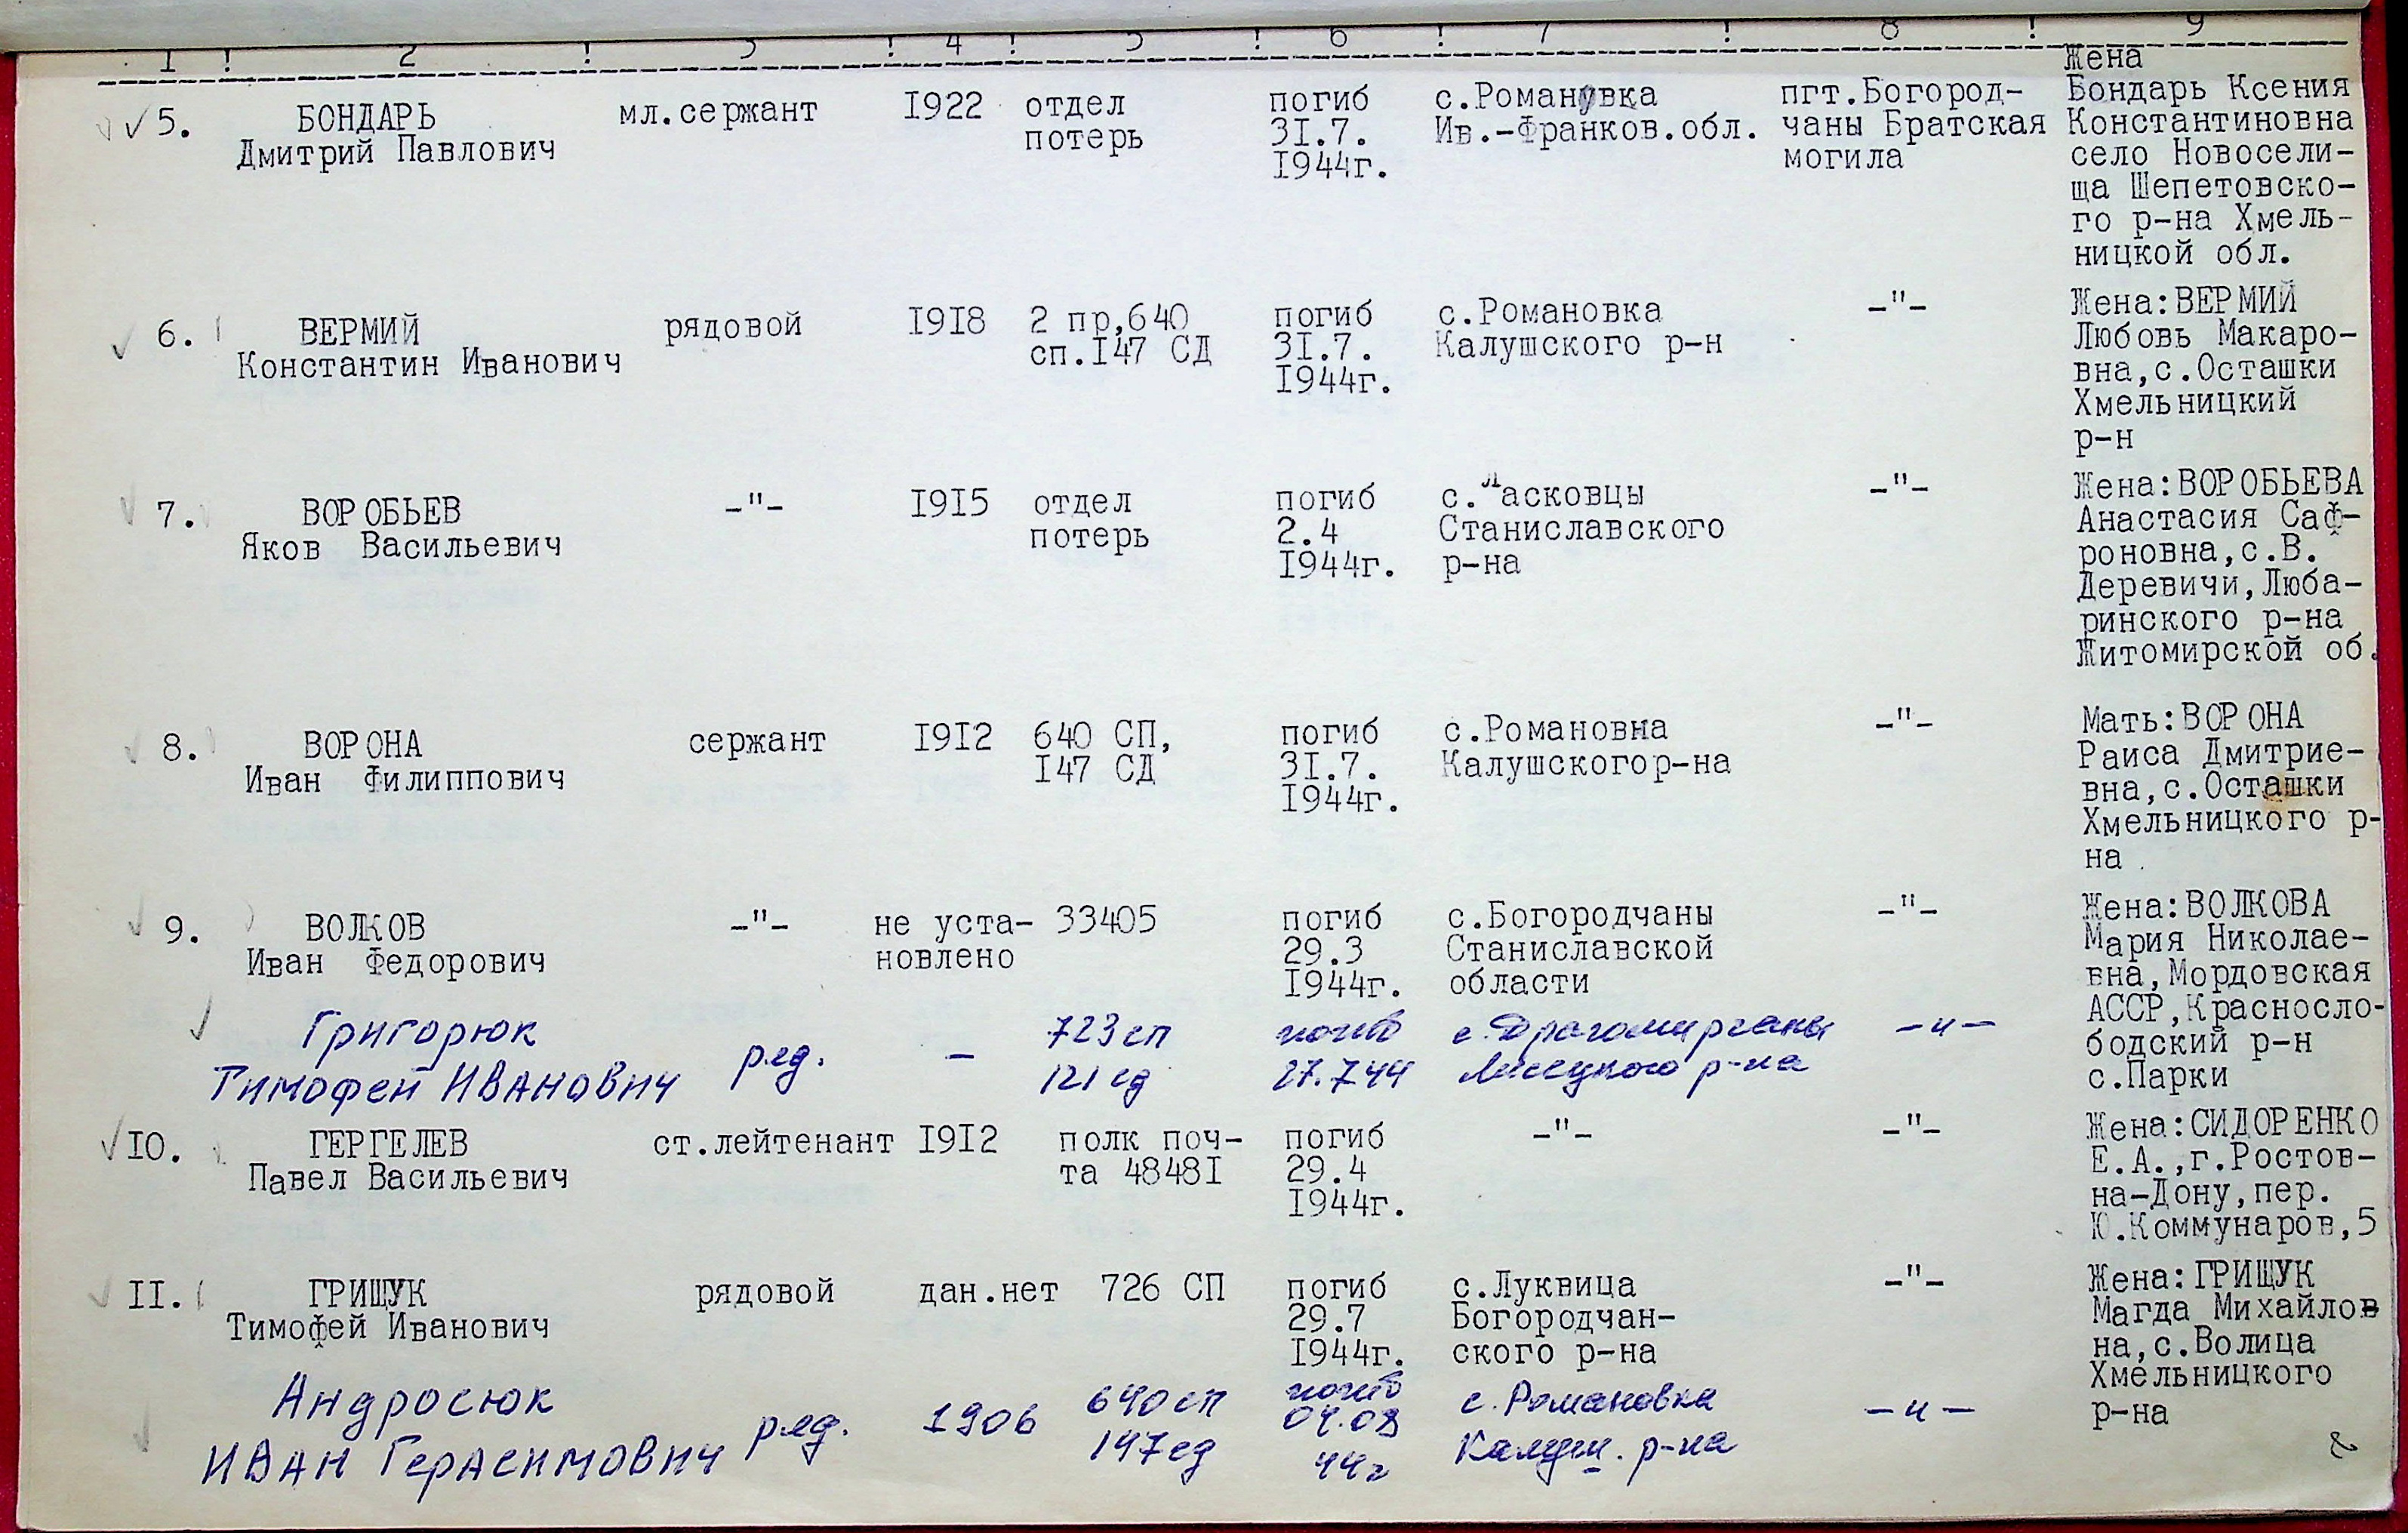 1 ! 2 ! 3 ! 4 ! 5 ! 6 ! 7 ! 8 ! 9
5. БОНДАРЬ
Дмитрий Павлович
мл.сержант
I922
отдел
потерь
погиб
3I.7.
I944г.
с.Романовка
Ив.-Франков.обл.
пгт.Богород-
чаны Братская
могила
Жена
Бондарь Ксения
Константиновна
село Новосели-
ща Шепетовско-
го р-на Хмель-
ницкой обл.
6. ВЕРМИЙ
Константин Иванович
рядовой
I9I8
2 пр,640
сп.I47 СД
погиб
3I.7.
I944г.
с.Романовка
Калушского р-н
-"-
Жена:ВЕРМИЙ
Любовь Макаро-
вна,с.Осташки
Хмельницкий
р-н
7. ВОРОБЬЕВ
Яков Васильевич
-"-
I9I5
отдел
потерь
погиб
2.4
I944г.
с.Ласковцы
Станиславского
р-на
-"-
Жена:ВОРОБЬЕВА
Анастасия Саф-
роновна,с.В.
Деревичи,Люба-
ринского р-на
Житомирской об.
8. ВОРОНА
Иван Филиппович
сержант
I9I2
640 СП,
I47 СД
погиб
3I.7.
I944г.
с.Романовна
Калушскогор-на
-"-
Мать:ВОРОНА
Раиса Дмитрие-
вна,с.Осташки
Хмельницкого р-
на
9. ВОЛКОВ
Иван Федорович
-"-
не уста-
новлено
33405
погиб
29.3
I944г.
с.Богородчаны
Станиславской
области
-"-
Жена:ВОЛКОВА
Мария Николае-
вна,Мордовская
АССР,Красносло-
бодский р-н
с.Парки
Григорюк
Тимофей Иванович
ряд.
-
723 сп
121 сд
погиб
27.7 44
с.Драгомирчаны
Лисецкого р-на
-"-
IO. ГЕРГЕЛЕВ
Павел Васильевич
ст.лейтенант
I9I2
полк поч-
та 4848I
погиб
29.4
I944г.
-"-
-"-
Жена:СИДОРЕНКО
Е.А.,г.Ростов-
на-Дону,пер.
Ю.Коммунаров,5
II. ГРИЩУК
Тимофей Иванович
рядовой
дан.нет
726 СП
погиб
29.7
I944г.
с.Луквица
Богородчан-
ского р-на
-"-
Жена:ГРИЩУК
Магда Михайлов
на,с.Волица
Хмельницкого
р-на
Андросюк
Иван Герасимович
ряд.
1906
640 сп
147 сд
погиб
04.08
44г
с. Романовка
Калуш. р-на
-"-